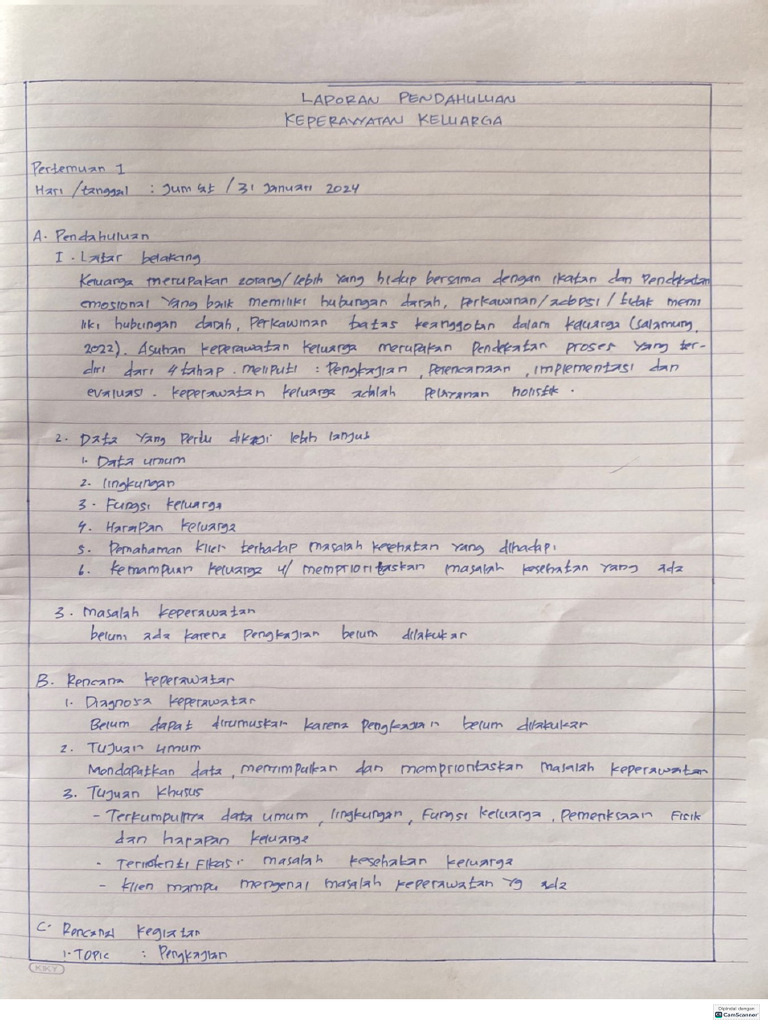 LAPORAN PENDAHULUAN
KEPERAWATAN KELUARGA
Pertemuan 1
Hari /tanggal : Jum'at / 31 Januari 2024
A. Pendahuluan
I. Latar belakang
Keluarga merupakan 2orang/lebih yang hidup bersama dengan ikatan dan Pendekatan
emosional yang baik memiliki hubungan darah, perkawinan/adopsi / tidak memi
liki hubungan darah, Perkawinan batas keanggotan dalam keluarga (salamung,
2022). Asuhan keperawatan keluarga merupakan Pendekatan proses yang ter-
diri dari 4 tahap. meliputi : Pengkajian, Perencanaan, implementasi dan
evaluasi. keperawatan keluarga adalah Pelayanan holistik.
2. Data yang Perlu dikaji lebih lanjut
1. Data umum
2. lingkungan
3. Fungsi keluarga
4. Harapan keluarga
5. Pemahaman klien terhadap masalah kesehatan yang dihadapi
6. kemampuan keluarga u/ memprioritaskan masalah kesehatan yang ada
3. Masalah keperawatan
belum ada karena Pengkajian belum dilakukan
B. Rencana keperawatan
1. Diagnosa keperawatan
Belum dapat dirumuskan karena pengkajian belum dilakukan
2. Tujuan umum
Mendapatkan data, menyimpulkan dan memprioritaskan masalah keperawatan
3. Tujuan khusus
- Terkumpulnya data umum, lingkungan, fungsi keluarga, Pemeriksaan Fisik
dan harapan keluarga
- Teridentifikasi masalah kesehatan keluarga
- klien mampu mengenal masalah keperawatan yg ada
C. Rencana kegiatan
1. TOPIC : Pengkajian
KKY
Dipindai dengan
CS CamScanner